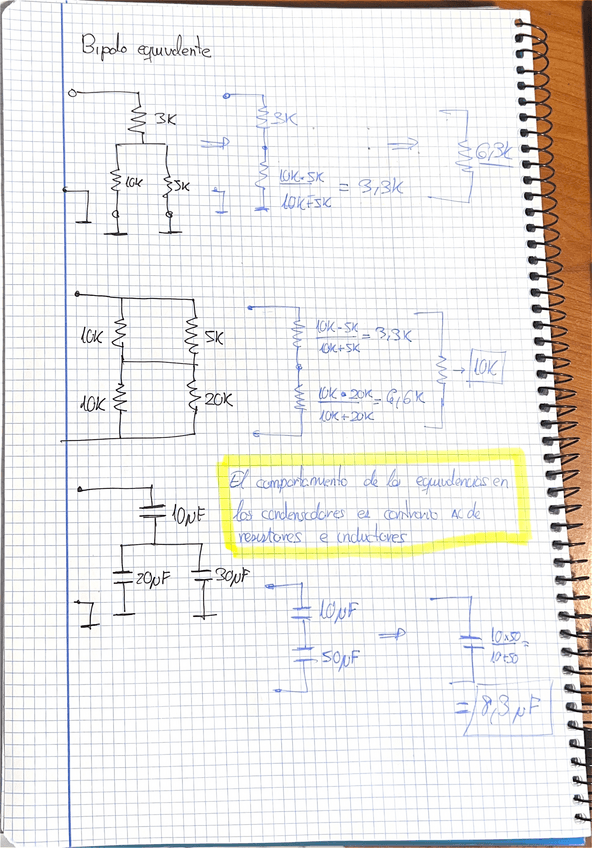 Bipolo equivalente
3K
10K
5K
⇒
3K
10K·5K
10K+5K
= 3,3K
⇒
6,3K
10K
5K
10K
20K
10K-5K
10K+5K
= 3,3K
10K·20K
10K+20K
= 6,6K
→ 10K
10µF
20µF
30µF
El comportamiento de las equivalencias en
los condensadores es contrario de
resistores e inductores
10µF
50µF
⇒
10x50
10+50
=
= 8,3µF